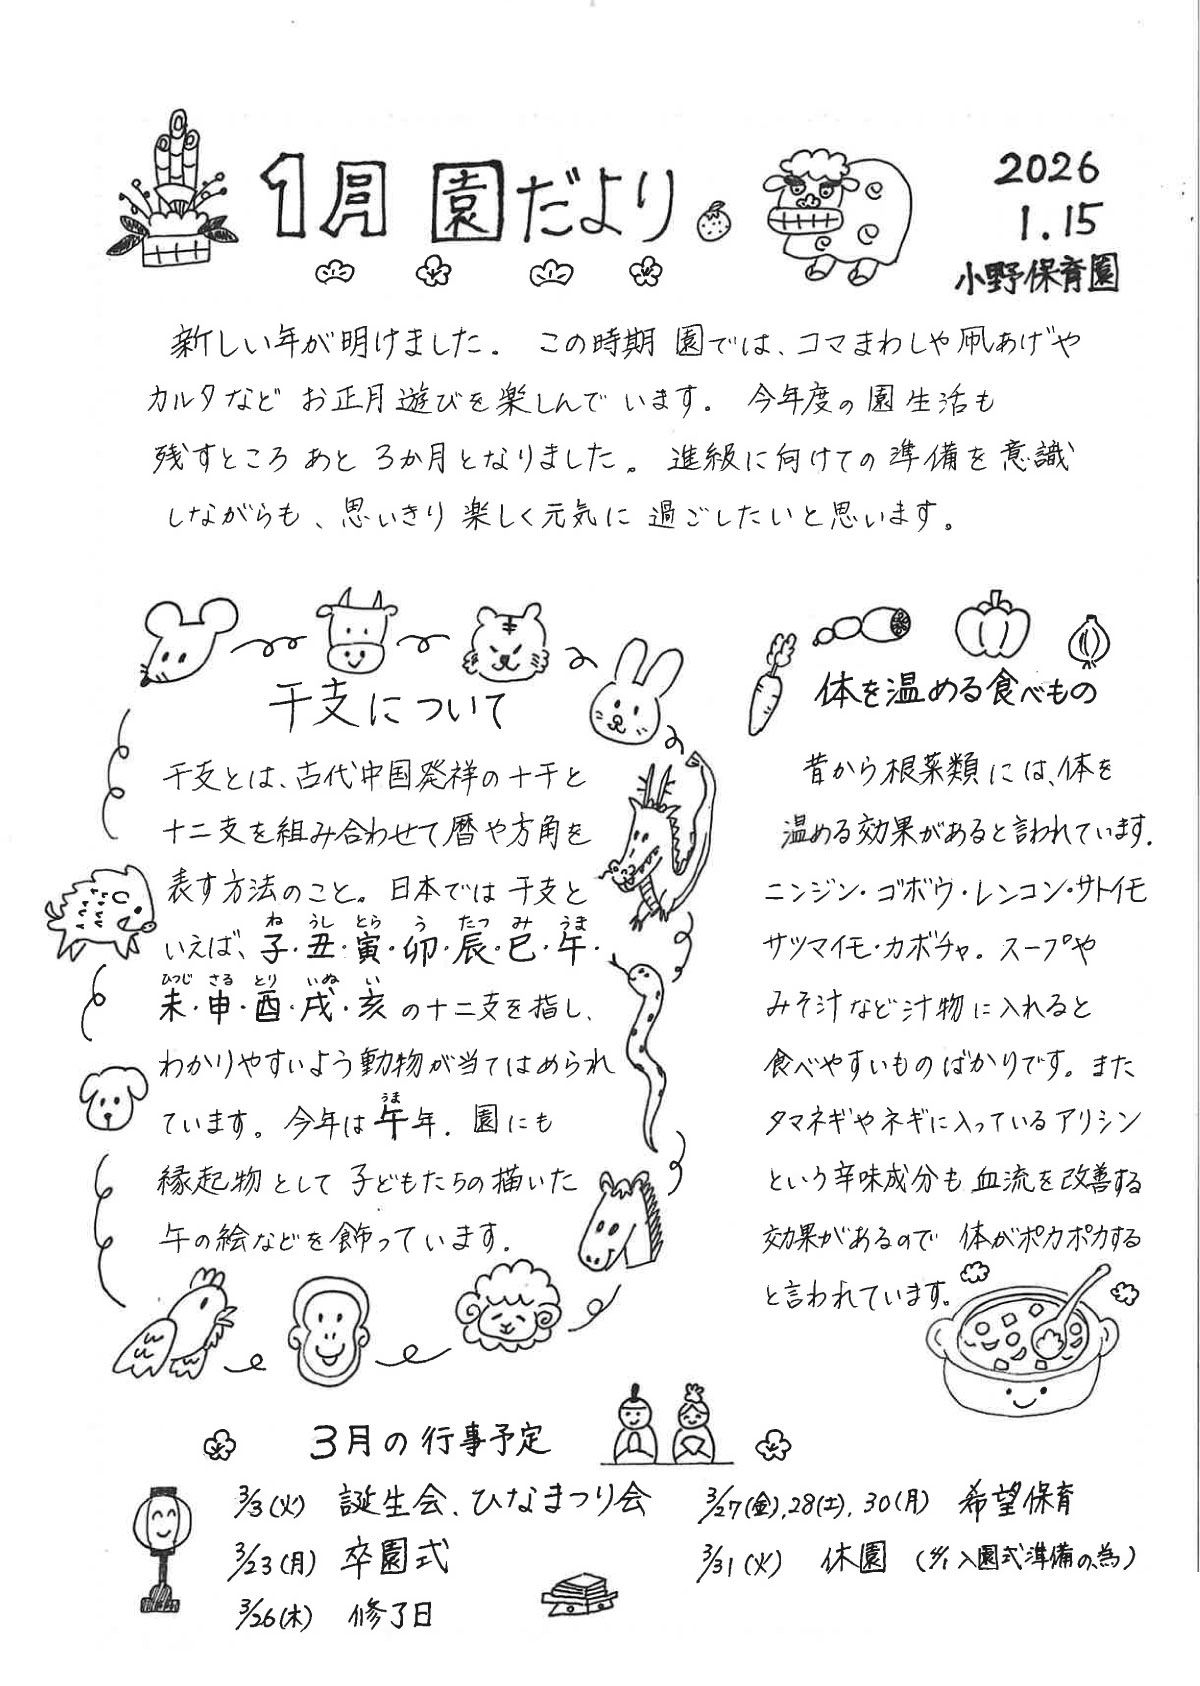 1月園だより。
2026
1.15
小野保育園
新しい年が明けました。この時期 園では、コマまわしや凧あげや
カルタなど お正月遊びを楽しんで います。 今年度の園生活も
残すところ あと 3か月となりました。 進級に向けての準備を意識
しながらも、思いきり 楽しく元気に 過ごしたいと思います。
干支について
干支とは、古代中国発祥の十干と
十二支を組み合わせて暦や方角を
表す方法のこと。日本では干支と
ね うし とら う たつ み うま
いえば、子・丑・寅・卯・辰・巳・午・
ひつじ さる とり いぬ い
未・申・酉・戌・亥 の十二支を指し、
わかりやすいよう動物が当てはめられ
うま
ています。今年は午年. 園にも
縁起物として 子どもたちの描いた
午の絵などを飾っています.
体を温める食べもの
昔から根菜類には、体を
温める効果があると言われています.
ニンジン・ゴボウ・レンコン・サトイモ
サツマイモ・カボチャ。スープや
みそ汁など汁物に入れると
食べやすいものばかりです。また
タマネギやネギに入っているアリシン
という辛味成分も 血流を改善する
効果があるので 体がポカポカする
と言われています。
3月の行事予定
3/3(火) 誕生会、ひなまつり会
3/23(月) 卒園式
3/26(木) 修了日
3/27(金),28(土),30(月) 希望保育
3/31(火) 休園 (4/1 入園式準備の為)